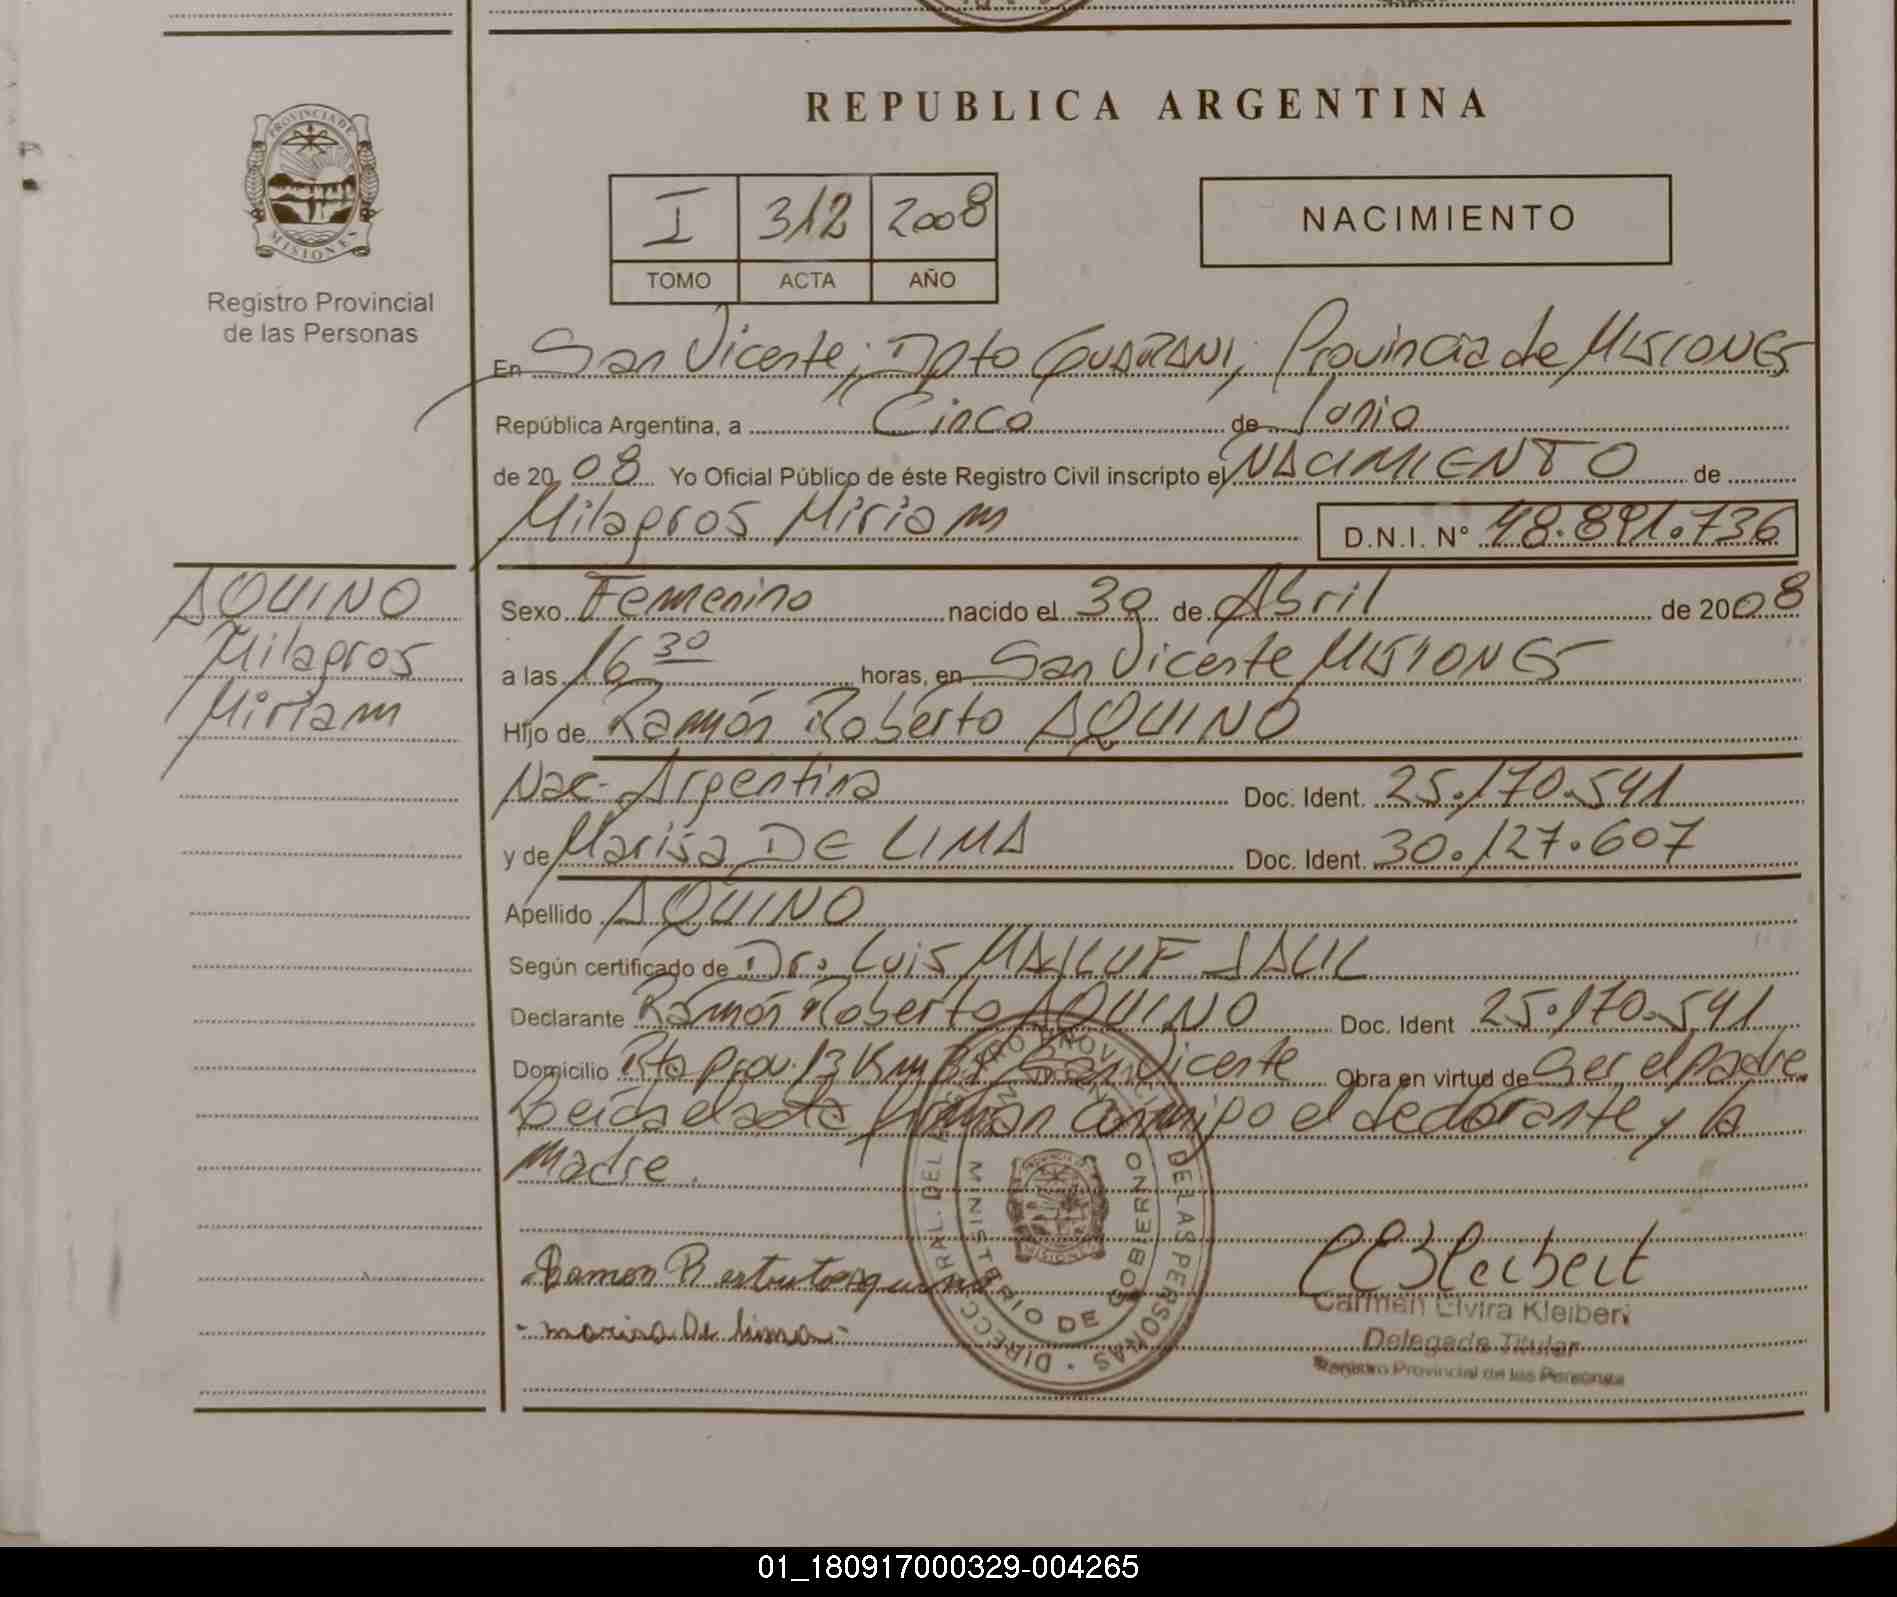 REPUBLICA ARGENTINA
PROVINCIA DE
MISIONES
Registro Provincial
de las Personas
I 312 2008
TOMO ACTA AÑO
NACIMIENTO
En San Vicente, Dpto GUARANI, Provincia de MISIONES
República Argentina, a Cinco de Junio
de 2008 Yo Oficial Público de éste Registro Civil inscripto el NACIMIENTO de
Milagros Miriam D.N.I. Nº 48.891.736
AQUINO
Milagros
Miriam
Sexo Femenino nacido el 30 de Abril de 2008
a las 16 30 horas, en San Vicente MISIONES
Hijo de Ramón Roberto AQUINO
Nac. Argentina Doc. Ident. 25.170.541
y de Marisa DE LIMA Doc. Ident. 30.127.607
Apellido AQUINO
Según certificado de Dr. Luis
Declarante Ramón Roberto AQUINO Doc. Ident 25.170.541
Domicilio Rta prov. 13 Km San Vicente Obra en virtud de Ser el padre.
Leída el acta firman conmigo el declarante y la
Madre.
Ramon
marisa de lima
DIRECC. GRAL. DEL REGISTRO PROVINCIAL DE LAS PERSONAS
MINISTERIO DE GOBIERNO
MISIONES
Carmen Elvira Kleibert
Delegada Titular
Registro Provincial de las Personas
01_180917000329-004265